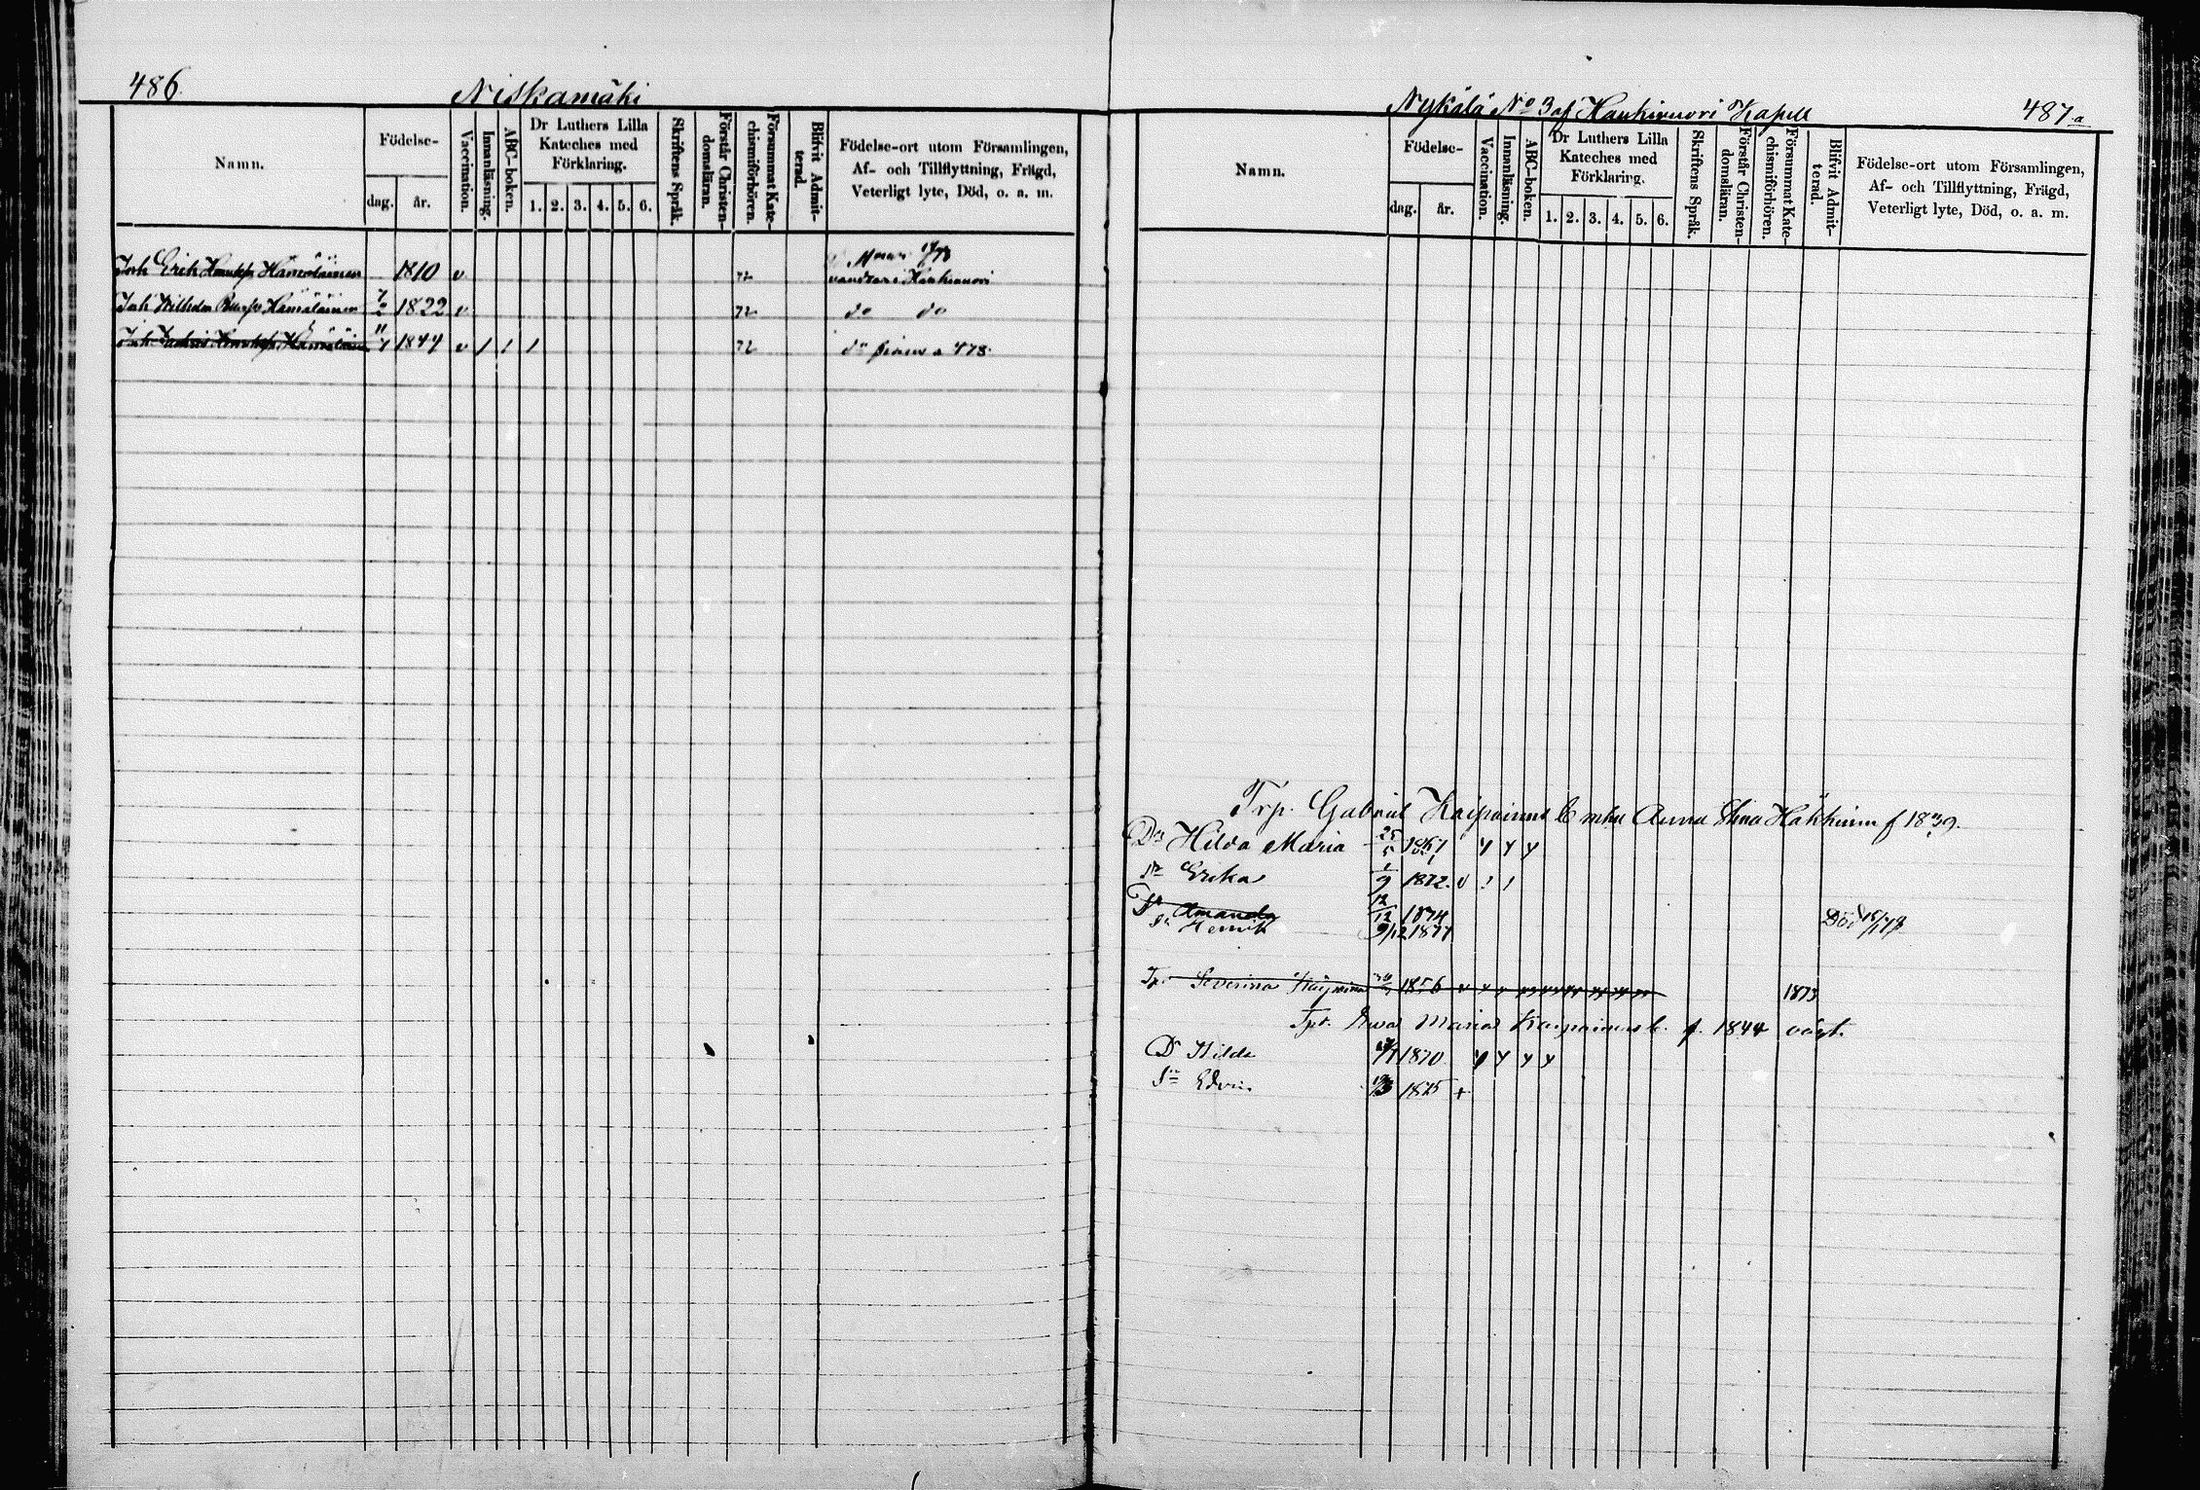 486.
Niskamäki
Namn.
Födelse-
dag.
år.
Vaccination.
Innanläsning.
ABC-boken.
Dr Luthers Lilla
Kateches med
Förklaring.
1. 2. 3. 4. 5. 6.
Skriftens Språk.
Förstår Christen-
domsläran.
Försummat Kate-
chismiförhören.
Blifvit Admit-
terad.
Födelse-ort utom Församlingen,
Af- och Tillflyttning, Frägd,
Veterligt lyte, Död, o. a. m.
Inh Erik Hämäläinen 1810 v 72 Haukivuori
Inh Wilhelm Hämäläinen 7/2 1822 v 72 do do
Inh 1844 v 1 1 1 72 do 478.
Nykälä No 3 af Haukivuori Kapell
487 a
Namn.
Födelse-
dag.
år.
Vaccination.
Innanläsning.
ABC-boken.
Dr Luthers Lilla
Kateches med
Förklaring.
1. 2. 3. 4. 5. 6.
Skriftens Språk.
Förstår Christen-
domsläran.
Försummat Kate-
chismiförhören.
Blifvit Admit-
terad.
Födelse-ort utom Församlingen,
Af- och Tillflyttning, Frägd,
Veterligt lyte, Död, o. a. m.
Trp. Gabriel Kaipainens Anna Stina Häkkinen f 1839.
Dr Hilda Maria 25/5
Erika 1/9 1872. v
Amanda 12/12 1874 Död
Henrik 9/12 1877
Severina 1856 1873
Maria Kaipainens f. 1844
D Hilda 1870
Sn Edvin 1875 +